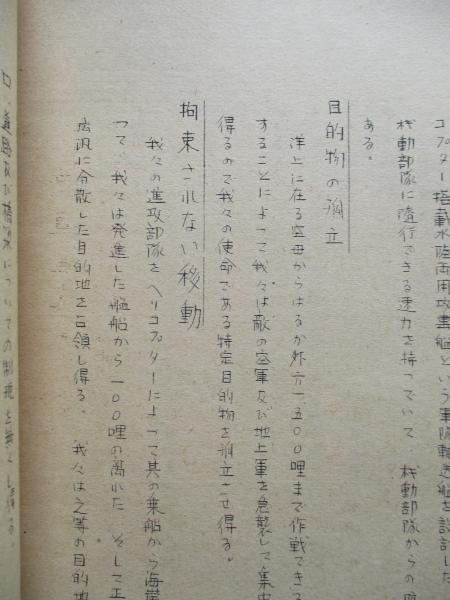 コプター搭載水陸両用攻撃艦という軍隊輸送艦を設計した
機動部隊に隨行できる速力を持っていて、機動部隊からの
ある。
目的物の孤立
洋上に在る空母からはるか外方一、五〇〇哩まで作戦できる
することによって我々は敵の空軍及び地上軍を急襲して集中
得るので我々の使命である特定目的物を孤立させ得る。
拘束されない移動
我々の進攻部隊をヘリコプターによって其の乗船から海岸
つて、我々は発進した艦船から一〇〇哩の離れた そして正
広汎に分散した目的地を占領し得る。 我々は之等の目的地
口、道路及び橋梁についての制扼を無くし得る。